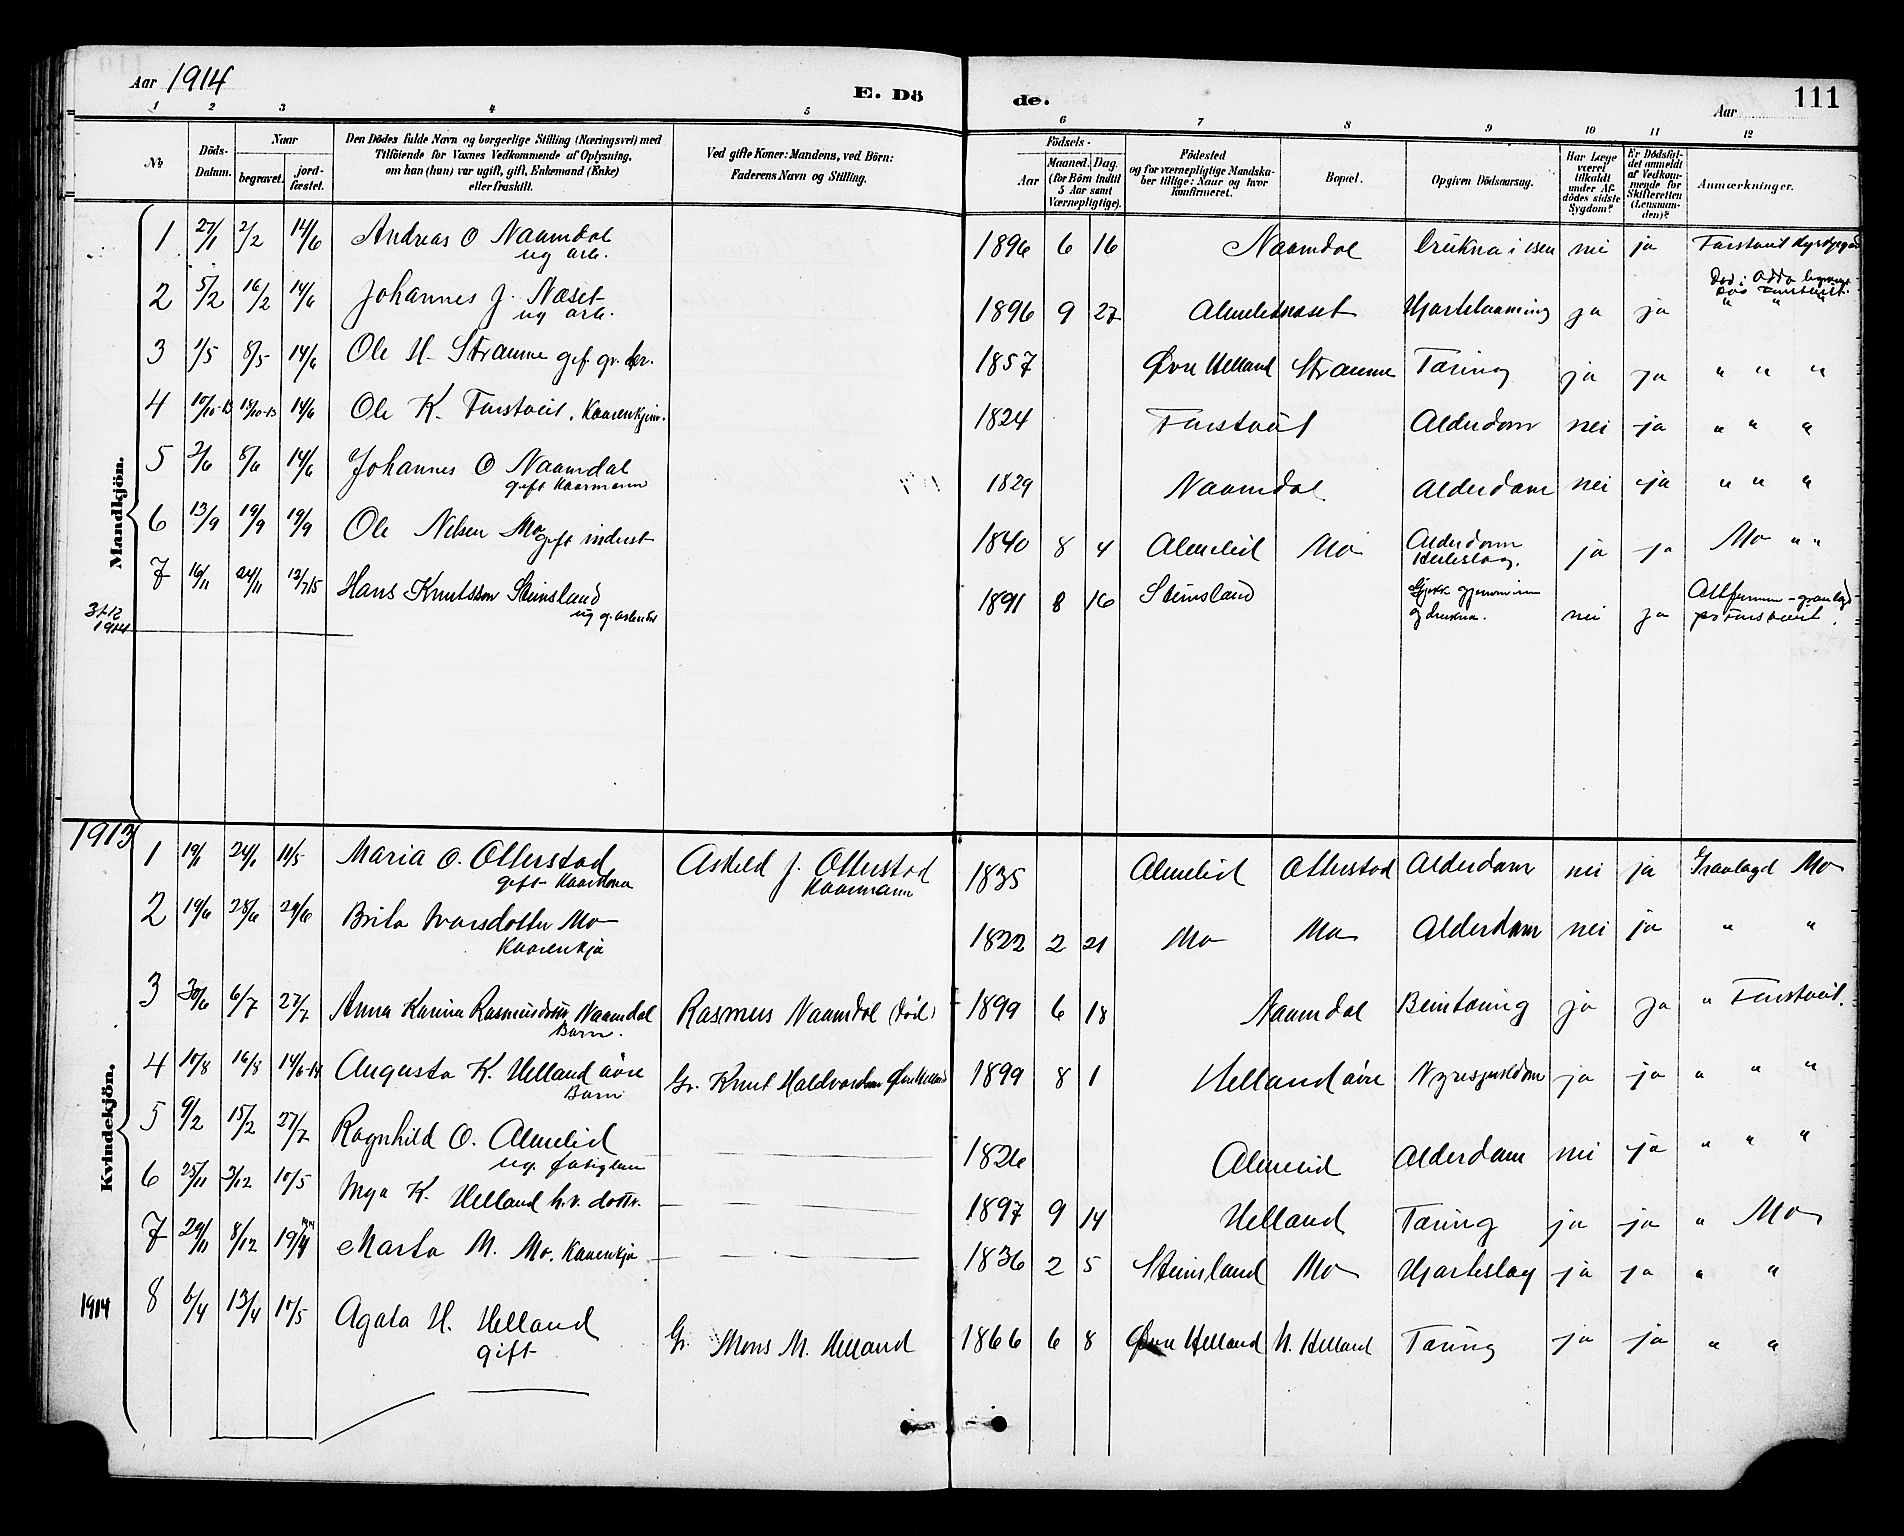 Aar 1914
E. Dö
de.
Aar
111
1 2 3 4 5 6 7 8 9 10 11 12
No
Döds-Datum.
Naar
begravet.
jord-fæstet.
Den Dödes fulde Navn og borgerlige Stilling (Næringsvei) med
Tilföiende for Voxnes Vedkommende af Oplysning,
om han (hun) var ugift, gift, Enkemand (Enke)
eller fraskilt.
Ved gifte Koner: Mandens, ved Börn:
Faderens Navn og Stilling.
Födsels-
Aar
Maaned. Dag.
(for Börn indtil
5 Aar samt
Værnepligtige).
Födested
og for værnepligtige Mandska-
ber tillige: Naar og hvor
konfirmeret.
Bopæl.
Opgiven Dödsaarsag.
Har Læge
været
tilkaldt
under Af-
dödes sidste
Sygdom?
Er Dödsfal-
det anmeldt
af Vedkom-
mende for
Skifteretten
(Lensman-
den)?
Anmærkninger.
Mandkjön.
1 27/1 2/2 14/6 Andreas O Naamdal 1896 6 16 Naamdal Drukna i isen nei ja
ug arb.
2 5/2 16/2 14/6 Johannes J. Næset 1896 9 27 Almelidnæset Hjartelaaming ja ja
ug arb.
3 1/5 8/5 14/6 Ole H. Straume gif. gr. 1857 Øvre Helland Straume Tæring ja ja " " "
4 10/10-13 18/10-13 14/6 Ole K. Farstveit. Kaarenkjem. 1824 Farstveit Alderdom nei ja " " "
5 2/6 8/6 14/6 Johannes O Naamdal 1829 Naamdal Alderdom nei ja " " "
gift Kaarmann
6 13/9 19/9 19/9 Ole Nilsen Mo gift inderst 1840 8 4 Almelid Mo Alderdom ja ja Mo " "
7 16/11 24/11 13/7 15 Hans Knutsson Steinsland 1891 8 16 Steinsland Gjekk gjenom isen
og drukna. nei ja
31-12
1914
1913
Kvindekjön.
1 19/1 24/1 14/5 Maria O. Otterstad Askild J. Otterstad 1835 Almelid Otterstad Alderdom nei ja Gravlagd Mo
gift Kaarkona Kaarmann
2 19/6 28/6 29/6 Brita Ivarsdotter Mo 1822 2 21 Mo Mo Alderdom nei ja " "
Kaarenkja
3 30/6 6/7 27/7 Anna Karina Rasmusdotter Naamdal Rasmus Naamdal (død) 1899 6 18 Naamdal Beintæring ja ja " Farstveit.
Barn.
4 10/8 16/8 14/6-14 Augusta K. Helland øvre Gr. Knut Haldvardson Øvre Helland 1899 8 1 Helland øvre Nyresjukdom ja ja " " "
Barn
5 9/2 15/2 27/7 Ragnhild O. Almelid 1826 Almelid Alderdom nei ja " " "
ug. fatiglem
6 25/11 3/12 10/5 Inga K. Helland h.v. dottr. 1897 9 14 Helland Tæring ja ja " Mo
7 29/11 8/12 19/4 1914 Marta M. Mo. Kaarenkja 1836 2 5 Steinsland Mo Hjarteslag ja ja " "
1914
8 6/4 13/4 10/5 Agata H. Helland Gr. Mons M. Helland 1866 6 8 Øvre Helland N. Helland Tæring ja ja " "
gift